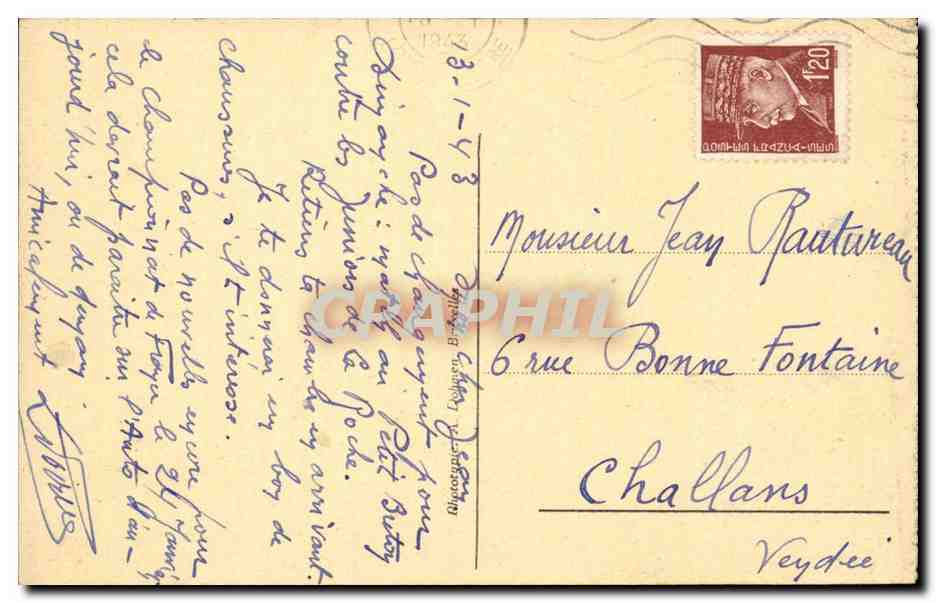 13-1-43
Mon cher Jean
Pas de changement pour
Dimanche : match au Petit Breton
contre les Juniors de la Roche.
Retiens ta chambre en arrivant.
Je te donnerai un bon de
chaussures, s'il t'intéresse.
Pas de nouvelles encore pour
le championnat de France le 24 Janvier,
cela devrait paraître sur l'Auto d'au-
jourd'hui, ou de demain.
Amicalement
Monsieur Jean Rautureau
6 rue Bonne Fontaine
Challans
Vendée
1F20
POSTES FRANÇAISES
1943
Bruxelles
CRAPHIL